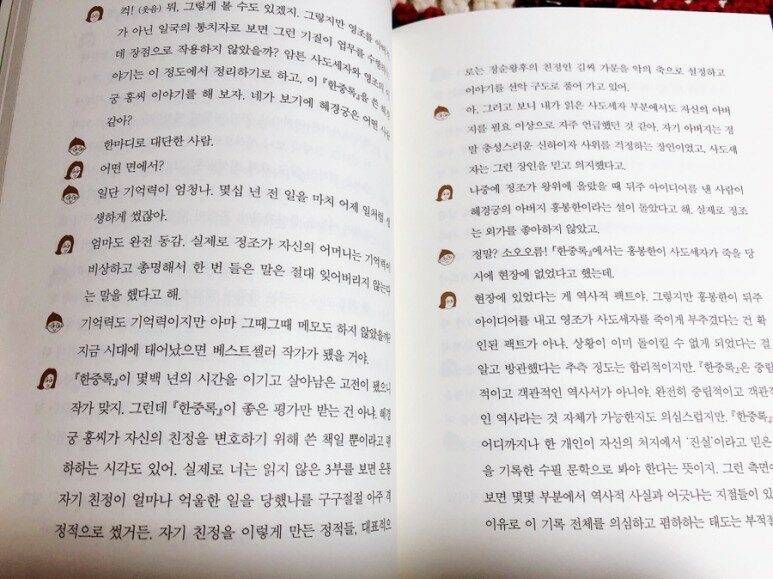 컥! (웃음) 뭐, 그렇게 볼 수도 있겠지. 그렇지만 영조를 아버지
가 아닌 일국의 통치자로 보면 그런 기질이 업무를 수행하는
데 장점으로 작용하지 않았을까? 암튼 사도세자와 영조의 이
야기는 이 정도에서 정리하기로 하고, 이 『한중록』을 쓴 혜경
궁 홍씨 이야기를 해 보자. 네가 보기에 혜경궁은 어떤 사람
같아?
한마디로 대단한 사람.
어떤 면에서?
일단 기억력이 엄청나. 몇십 년 전 일을 마치 어제 일처럼 생
생하게 썼잖아.
엄마도 완전 동감. 실제로 정조가 자신의 어머니는 기억력이
비상하고 총명해서 한 번 들은 말은 절대 잊어버리지 않는다
는 말을 했다고 해.
기억력도 기억력이지만 아마 그때그때 메모도 하지 않았을까?
지금 시대에 태어났으면 베스트셀러 작가가 됐을 거야.
『한중록』이 몇백 년의 시간을 이기고 살아남은 고전이 됐으니
작가 맞지. 그런데 『한중록』이 좋은 평가만 받는 건 아냐. 혜경
궁 홍씨가 자신의 친정을 변호하기 위해 쓴 책일 뿐이라고 폄
하하는 시각도 있어. 실제로 너는 읽지 않은 3부를 보면 온통
자기 친정이 얼마나 억울한 일을 당했나를 구구절절 아주 격
정적으로 썼거든. 자기 친정을 이렇게 만든 정적들, 대표적으
로는 정순왕후의 친정인 김씨 가문을 악의 축으로 설정하고
이야기를 선악 구도로 풀어 가고 있어.
아, 그러고 보니 내가 읽은 사도세자 부분에서도 자신의 아버
지를 필요 이상으로 자주 언급했던 것 같아. 자기 아버지는 정
말 충성스러운 신하이자 사위를 걱정하는 장인이었고, 사도세
자는 그런 장인을 믿고 의지했다고.
나중에 정조가 왕위에 올랐을 때 뒤주 아이디어를 낸 사람이
혜경궁의 아버지 홍봉한이라는 설이 돌았다고 해. 실제로 정조
는 외가를 좋아하지 않았고.
정말? 소오오름! 『한중록』에서는 홍봉한이 사도세자가 죽을 당
시에 현장에 없었다고 했는데.
현장에 있었다는 게 역사적 팩트야. 그렇지만 홍봉한이 뒤주
아이디어를 내고 영조가 사도세자를 죽이게 부추겼다는 건 확
인된 팩트가 아냐. 상황이 이미 돌이킬 수 없게 되었다는 걸
알고 방관했다는 추측 정도는 합리적이지만. 『한중록』은 중립
적이고 객관적인 역사서가 아니야. 완전히 중립적이고 객관적
인 역사라는 것 자체가 가능한지도 의심스럽지만. 『한중록』은
어디까지나 한 개인이 자신의 처지에서 '진실'이라고 믿은
을 기록한 수필 문학으로 봐야 한다는 뜻이지. 그런 측면에
보면 몇몇 부분에서 역사적 사실과 어긋나는 지점들이 있
이유로 이 기록 전체를 의심하고 폄하하는 태도는 부적절